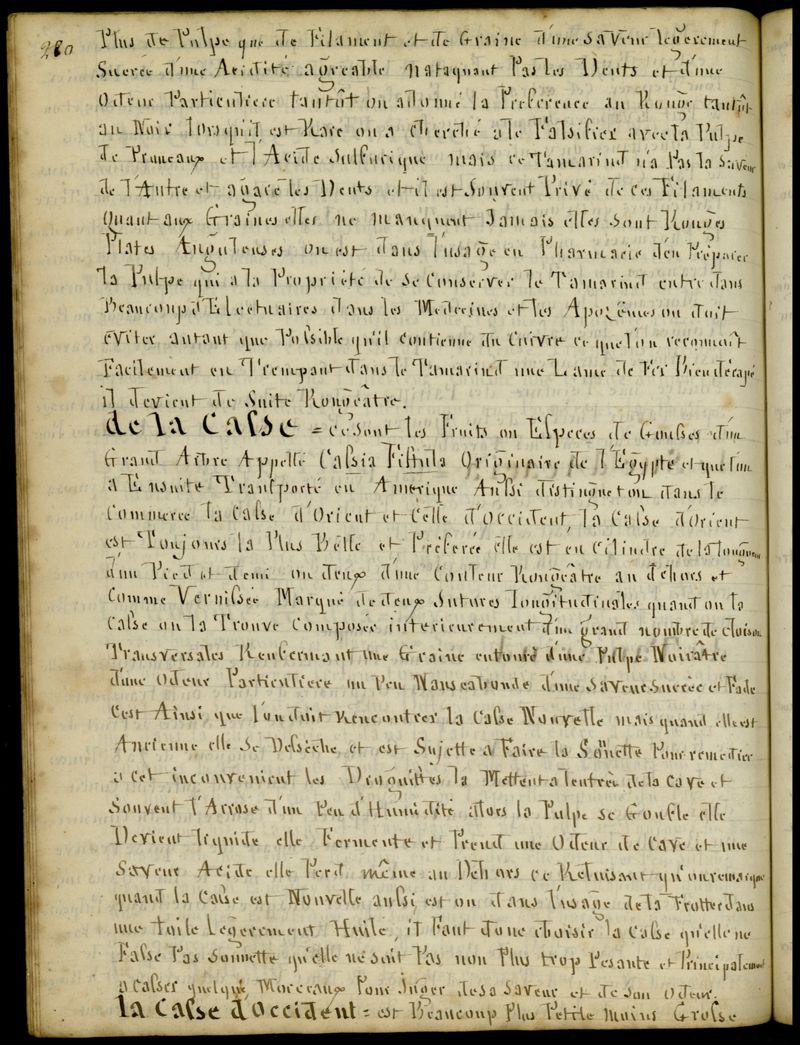 280
Plus de Pulpe que de Filament et de Graine d'une saveur legerement
Sucrée d'une Acidité agreable nataquant Pas les Dents et d'une
Odeur Particuliere tantôt on a donné la Preference au Rouge tantôt
au Noir lorsqu'il est Rare on a cherché a le Falsifier avec la Pulpe
de Pruneaux et l'Acide Sulfurique mais ce Tamarind n'a Pas la Saveur
de l'Autre et agace les Dents et il est Souvent Privé de ces Filaments
Quant aux Graines elles ne manquent Jamais elles sont Rouges
Plates Anguleuses on est dans l'usage en Pharmacie d'en Préparer
la Pulpe qui a la Propriété de se Conserver le Tamarind entre dans
Beaucoup d'Electuaires dans les Medecines et les Apozêmes on doit
eviter autant que Possible qu'il contienne du Cuivre ce que l'on reconnoit
Facilement en Trempant dans le Tamarind une Lame de Fer Bien décapé
il devient de Suite Rougeâtre.
de la Casse = ce sont les Fruits ou Especes de Gousses d'un
Grand Arbre Appellé Cassia Fistula Originaire de l'Egypte et que l'on
a Ensuite Transporté en Amerique Aussi distingue t on dans le
Commerce la Casse d'Orient et Celle d'Occident, la Casse d'Orient
est Toujours la Plus Belle et Preferée elle est en Cilindre de la longueur
d'un Pied et demi ou deux d'une Couleur Rougeâtre au dehors et
Comme Vernissée Marqué de deux Sutures longitudinales quand on la
Casse on la Trouve Composée interieurement d'un grand nombre de cloison
Transversales Renfermant une Graine entouré d'une Pulpe Noirâtre
d'une Odeur Particuliere un Peu Nauseabonde d'une Saveur Sucrée et Fade
C'est Ainsi que l'on doit Rencontrer la Casse Nouvelle mais quand elle est
Ancienne elle Se Desseche et est Sujette a Faire la Sonette Pour remedier
a cet inconvenient les Droguistes la Mettent a lentrée de la Cave et
Souvent l'Arrose d'un Peu d'Humidité alors la Pulpe Se Gonfle elle
Devient liquide elle Fermente et Prend une Odeur de Cave et une
Saveur Acide elle Perd même au Dehors ce Reluisant qu'on remarque
quand la Casse est Nouvelle aussi est on dans l'usage de la Frotter dans
une toile Legerement Huilé, il Faut donc choisir la Casse qu'elle ne
Fasse Pas Sonnette qu'elle ne soit Pas non Plus trop Pesante et Principalement
a Casser quelque Morceaux Pour Juger de sa Saveur et de Son Odeur.
la Casse d'Occident = est Beaucoup Plus Petite moins Grosse